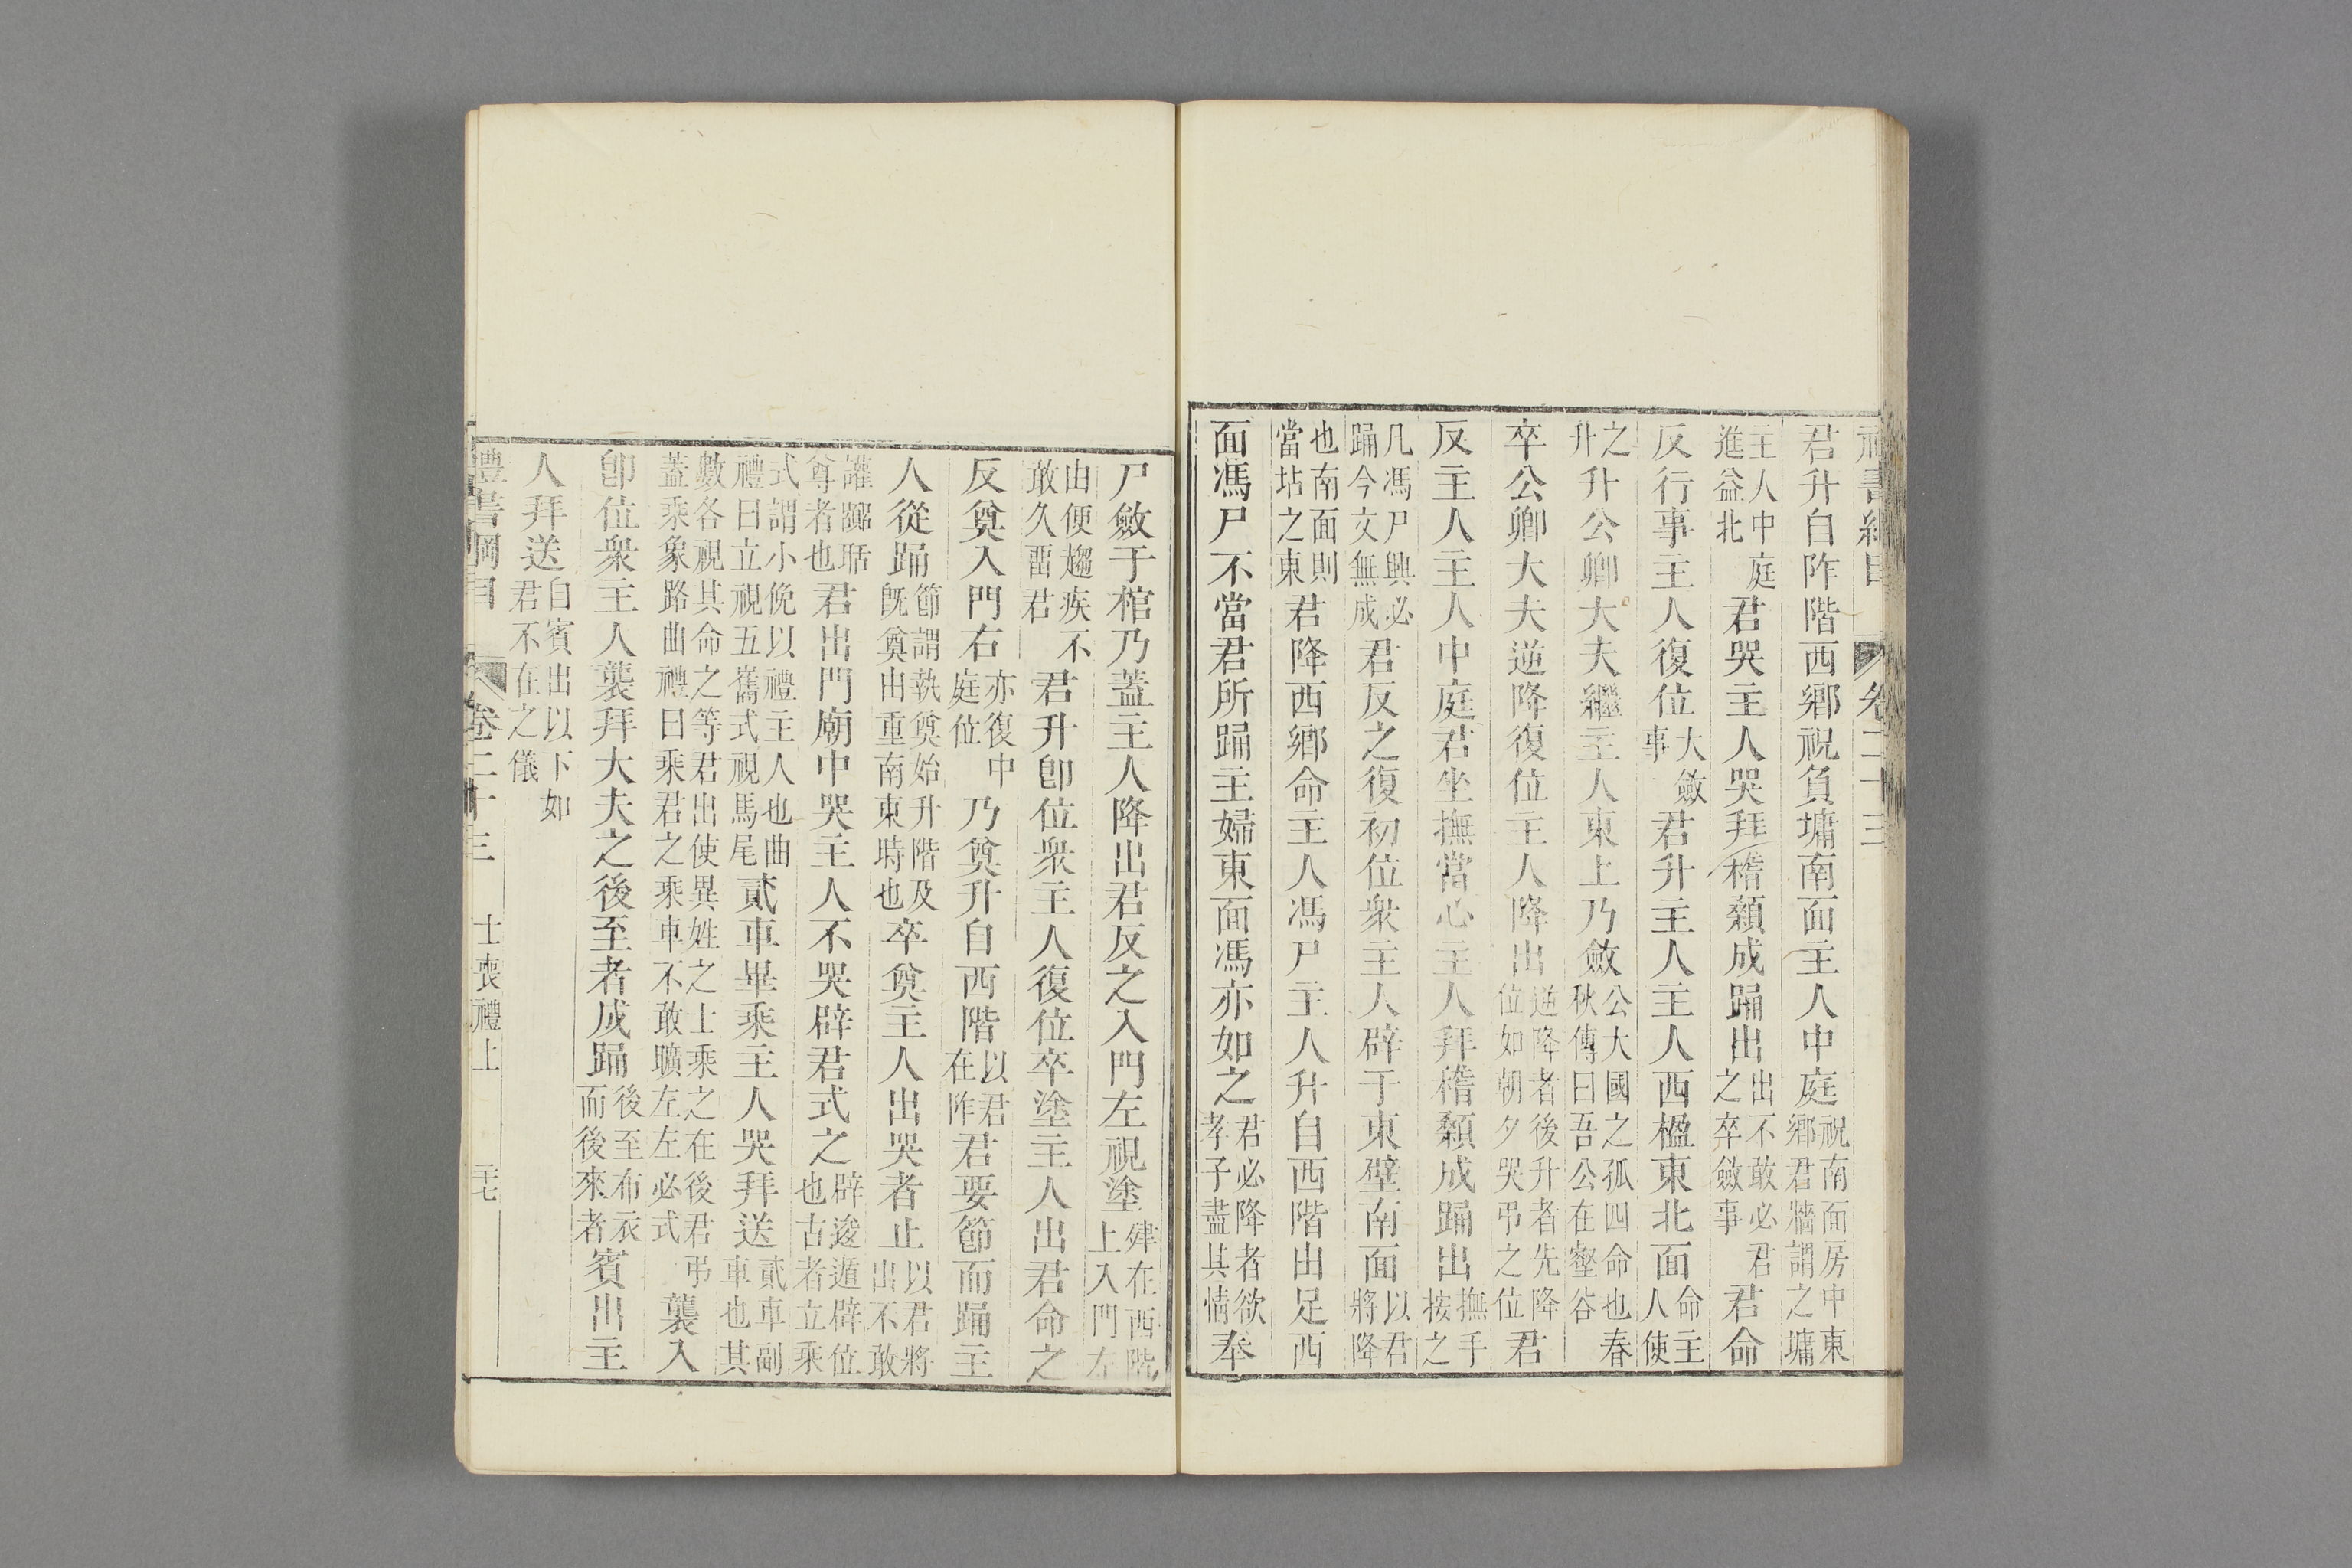 禮書綱目 卷二十三
君升自阼階西鄉祝負墉南面主人中庭祝南面房中東鄉君牆謂之墉
主人中庭進益北君哭主人哭拜稽顙成踊出出不敢必君之卒斂事君命
反行事主人復位大斂事君升主人主人西楹東北面命主人使
之升升公卿大夫繼主人東上乃斂公大國之孤四命也春秋傳曰吾公在壑谷
卒公卿大夫逆降復位主人降出逆降者後升者先降位如朝夕哭弔之位君
反主人主人中庭君坐撫當心主人拜稽顙成踊出撫手按之
凡馮尸興必踊今文無成君反之復初位衆主人辟于東壁南面以君將降
也南面則當坫之東君降西鄉命主人馮尸主人升自西階由足西
面馮尸不當君所踊主婦東面馮亦如之君必降者欲孝子盡其情奉
尸斂于棺乃蓋主人降出君反之入門左視塗肂在西階上入門左
由便趨疾不敢久畱君君升卽位衆主人復位卒塗主人出君命之
反奠入門右亦復中庭位乃奠升自西階以君在阼君要節而踊主
人從踊節謂執奠始升階及旣奠由重南東時也卒奠主人出哭者止以君將出不敢
讙囂聒尊者也君出門廟中哭主人不哭辟君式之辟逡遁辟位也古者立乘
式謂小俛以禮主人也曲禮曰立視五巂式視馬尾貳車畢乘主人哭拜送貳車副車也其
數各視其命之等君出使異姓之士乘之在後君弔蓋乘象路曲禮曰乘君之乘車不敢曠左左必式襲入
卽位衆主人襲拜大夫之後至者成踊後至布衣而後來者賓出主
人拜送自賓出以下如君不在之儀
禮書綱目 卷二十三 士喪禮上 卄七